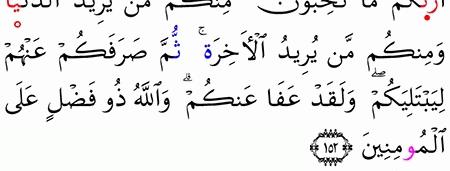 أَرىٰكُم مَّا تُحِبُّونَ مِنكُم مَّن يُرِيدُ الدُّنْيَا
وَمِنكُم مَّن يُرِيدُ الْأَخِرَةَۚ ثُمَّ صَرَفَكُمْ عَنْهُمْ
لِيَبْتَلِيَكُمْۖ وَلَقَدْ عَفَا عَنكُمْۗ وَاللَّهُ ذُو فَضْلٍ عَلَى
الْمُومِنِينَ ١٥٢